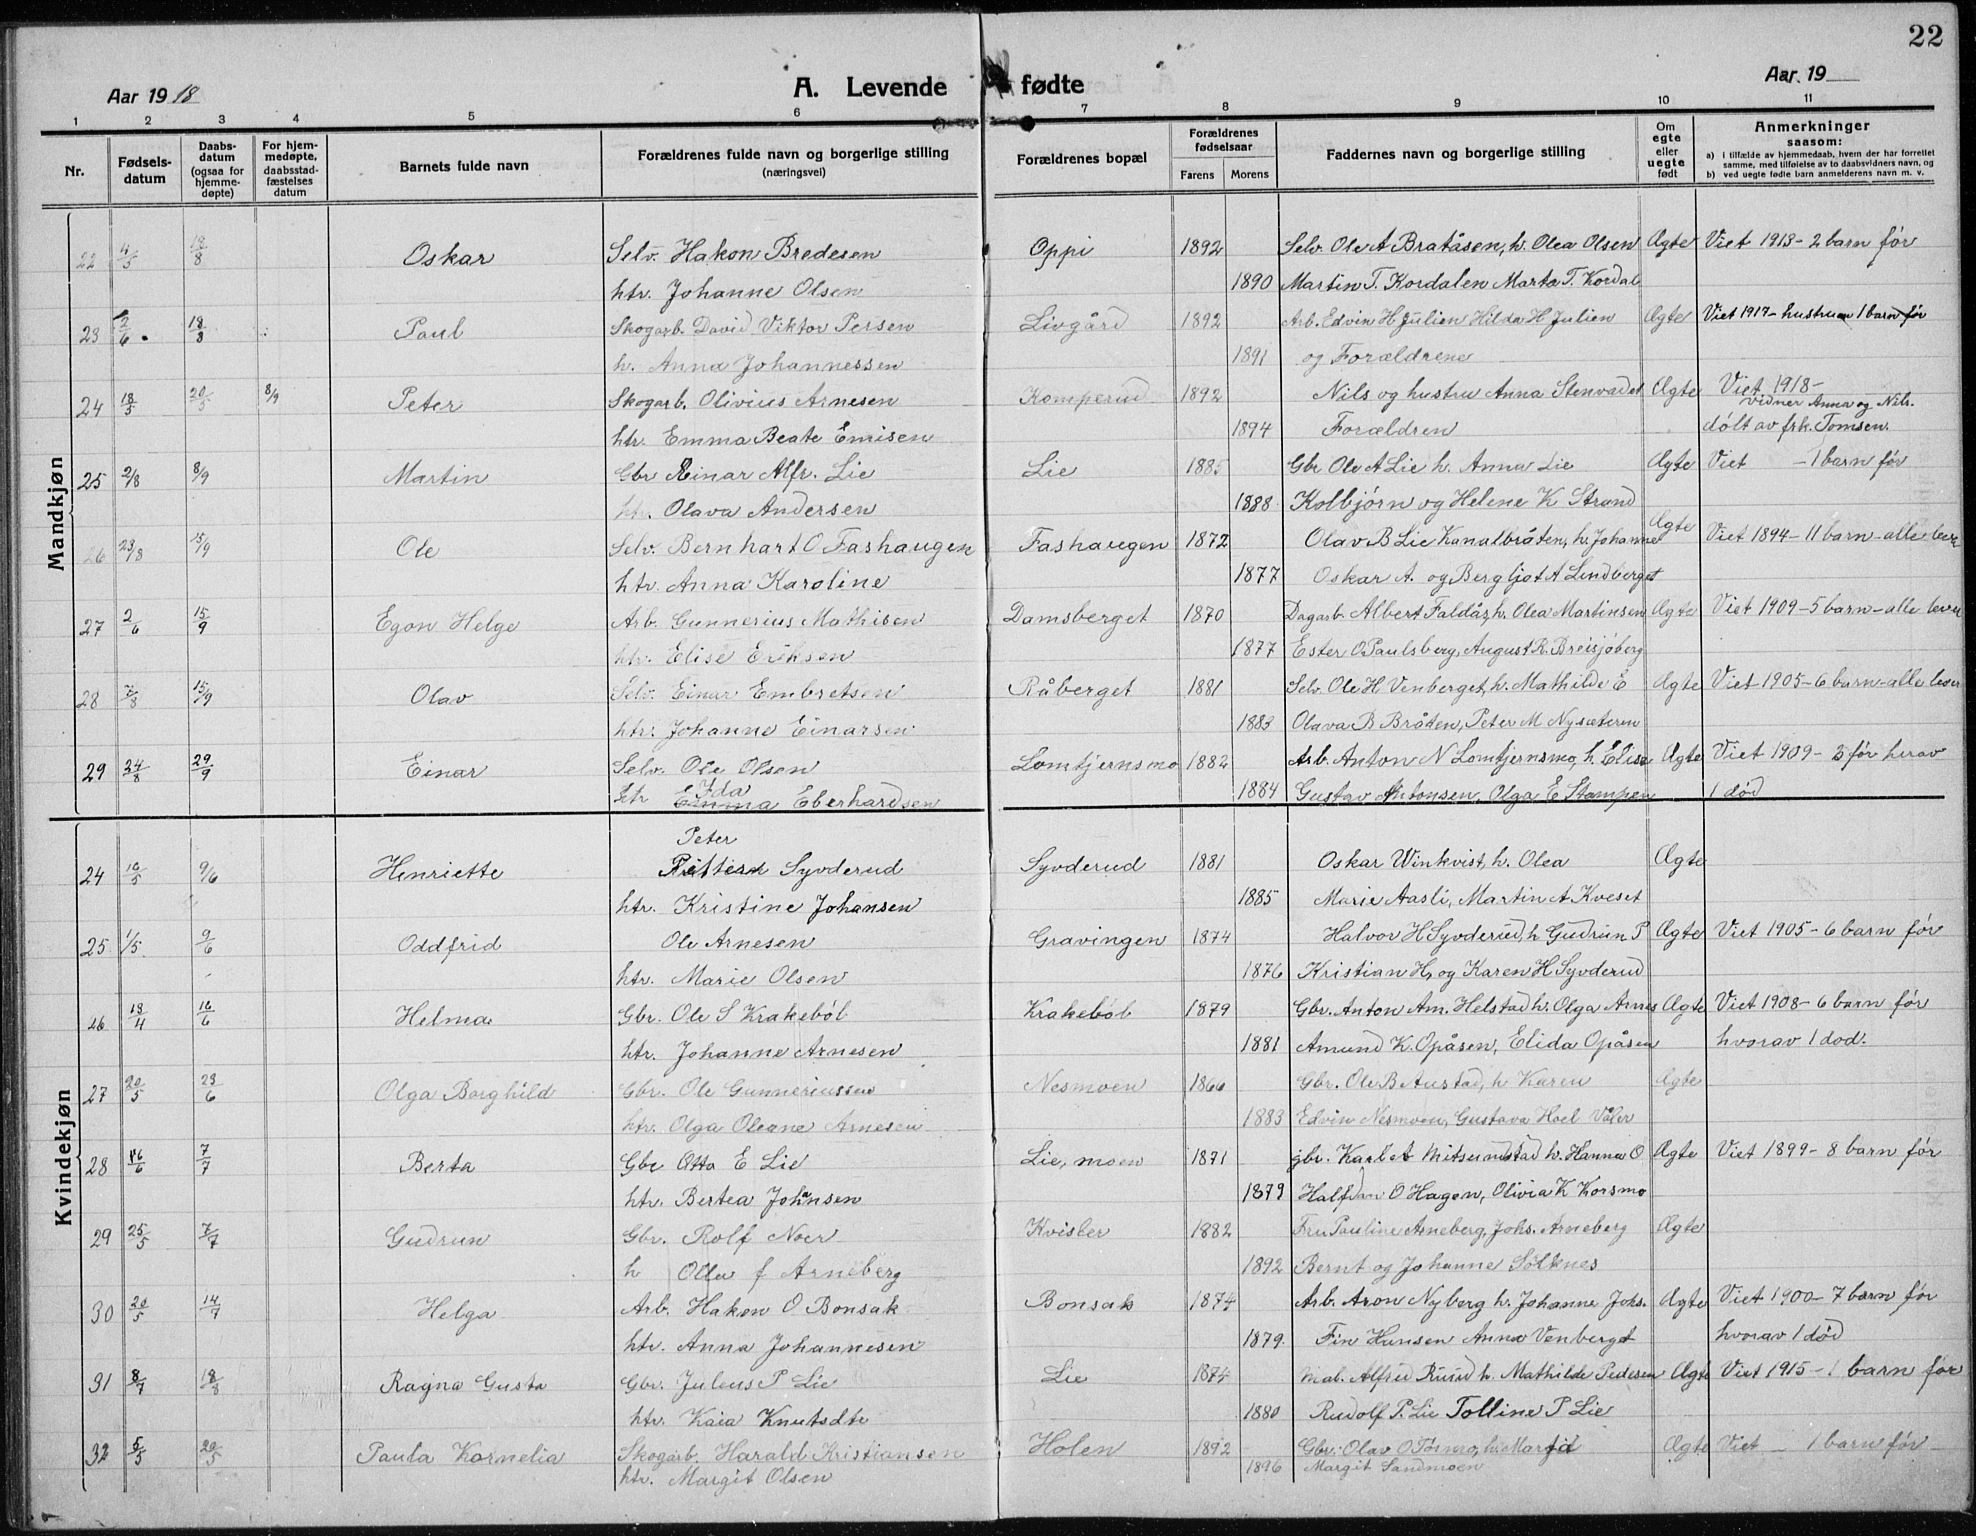 22
Aar 1918 A. Levende fødte Aar 19
1 2 3 4 5 6 7 8 9 10 11
Nr. Fødselsdatum Daabsdatum (ogsaa for hjemmedøpte) For hjemmedøpte, daabsstadfæstelses datum Barnets fulde navn Forældrenes fulde navn og borgerlige stilling (næringsvei) Forældrenes bopæl Forældrenes fødselsaar Farens Morens Faddernes navn og borgerlige stilling Om egte eller uegte født Anmerkninger saasom: a) i tilfælde av hjemmedaab, hvem der har forrettet samme, med tilføielse av to daabsvidners navn, og b) ved uegte fødte barn anmelderens navn m. v.
Mandkjøn
22 4/5 18/8 Oskar Selv. Hakon Bredesen Oppi 1892 Selv. Ole A Bratåsen, h. Olea Olsen Ægte Viet 1913 - 2 barn før
htr. Johanne Olsen 1890 Martin T. Kordalen Marta T. Kordal
23 2/6 18/8 Paul Skogarb. David Viktor Persen Livgård 1892 Arb. Edvin H Julien Hilda H Julien Ægte Viet 1917 - hustruen 1 barn før
h. Anna Johannessen 1891 og Forældrene
24 18/5 20/5 8/9 Peter Skogarb. Olivius Arnesen Komperud 1892 Nils og hustru Anna Stenvadet Ægte Viet 1918 -
vidner Anna og Nils.
htr. Emma Beate Enrisen 1894 Forældren døbt av frk. Tomsen.
25 2/8 8/9 Martin Gbr Einar Alfr. Lie Lie 1885 Gbr Ole A Lie h. Anna Lie Ægte Viet - 1 barn før
htr. Olava Andersen 1888 Kolbjørn og Helene K Strand
26 23/8 15/9 Ole Selv. Bernhart O Fashaugen Fashaugen 1872 Olav B Lie Kanalbråten, h. Johanne Ægte Viet 1894 - 11 barn - alle lever
htr. Anna Karoline 1877 Oskar A. og Bergljot A Lindberget
27 2/6 15/9 Egon Helge Arb. Gunnerius Mathisen Damsberget 1870 Dagarb. Albert Faldås, h. Olea Martinsen Ægte Viet 1909 - 5 barn - alle lever
htr. Elise Eriksen 1877 Ester O Paulsberg, August R. Breisjøberg
28 7/8 15/9 Olav Selv. Einar Embretsen Råberget 1881 Selv. Ole H Venberget, h. Mathilde E Ægte Viet 1905 - 6 barn - alle lever
htr. Johanne Einarsen 1883 Olava B Bråten, Peter M Nysæteren
29 24/8 29/9 Einar Selv. Ole Olsen Lomtjernsmo 1882 Arb. Anton N Lomtjernsmo, h. Elise Ægte Viet 1909 - 5 før herav
Ida
htr Emma Eberhardsen 1884 Gustav Antonsen, Olga E Stampen 1 død
Kvindekjøn
Peter
24 16/5 9/6 Henriette Syvderud Syvderud 1881 Oskar Winkvist, h. Olea Ægte
htr. Kristine Johansen 1885 Marie Aasli, Martin A Kveset
25 1/5 9/6 Oddfrid Ole Arnesen Gravingen 1874 Halvor H Syvderud, h Gudrun P Ægte Viet 1905 - 6 barn før
htr. Marie Olsen 1876 Kristian H, og Karen H Syvderud
26 18/4 16/6 Helma Gbr. Ole S Krakebøl Krakebøl 1879 Gbr. Anton Am. Helstad h. Olga Arnes Ægte Viet 1908 - 6 barn før
htr. Johanne Arnesen 1881 Amund K. Opåsen, Elida Opåsen hvorav 1 død.
27 20/5 23/6 Olga Borghild Gbr. Ole Gunneriussen Nesmoen 1866 Gbr. Ole B Austad, h Karen Ægte
htr. Olga Oleane Arnesen 1883 Edvin Nesmoen, Gustava Hoel Våler
28 16/6 7/7 Berta Gbr Otto E Lie Lie, moen 1871 gbr. Karl A Mitserudstad h. Hanna O Ægte Viet 1899 - 8 barn før
htr. Bertea Johansen 1879 Halfdan O Hagen, Olivia K Korsmo
29 25/5 7/7 Gudrun Gbr. Rolf Noer Kvisler 1882 Fru Pauline Arneberg, Johs. Arneberg Ægte
h f Arneberg 1892 Bernt og Johanne Solknes
30 20/5 14/7 Helga Arb. Hakon O Bonsak Bonsak 1874 Arb. Aron Nyberg h. Johanne Johs. Ægte Viet 1900 - 7 barn før
htr. Anna Johannesen 1879. Fin Hansen Anna Venberget hvorav 1 død
31 8/7 18/8 Ragna Gusta Gbr. Juleus P Lie Lie 1874 Mal. Alfred Ruud h. Mathilde Pedersen Ægte Viet 1915 - 1 barn før
htr. Kaia Knutsdtr 1880 Rudolf P. Lie Tolline P Lie
32 5/5 20/5 Paula Kornelia Skogarb. Harald Kristiansen Holen 1892 Gbr. Olav O Tormo, h. Martil Ægte Viet - 1 barn før
htr. Margit Olsen 1896 Margit Sandmoen